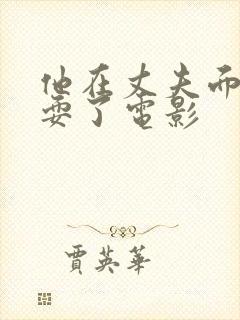 他在丈夫而
耍了電影
賈英華